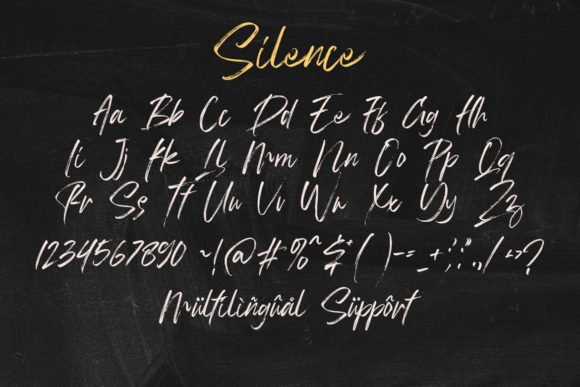 Silence
Aa Bb Cc Dd Ee Ff Gg Hh
Ii Jj Kk Ll Mm Nn Oo Pp Qq
Rr Ss Tt Uu Vv Ww Xx Yy Zz
1234567890 ~!@#%^&*()-=_+;':".,/<>?
Mültilìñgûål Süppôrt